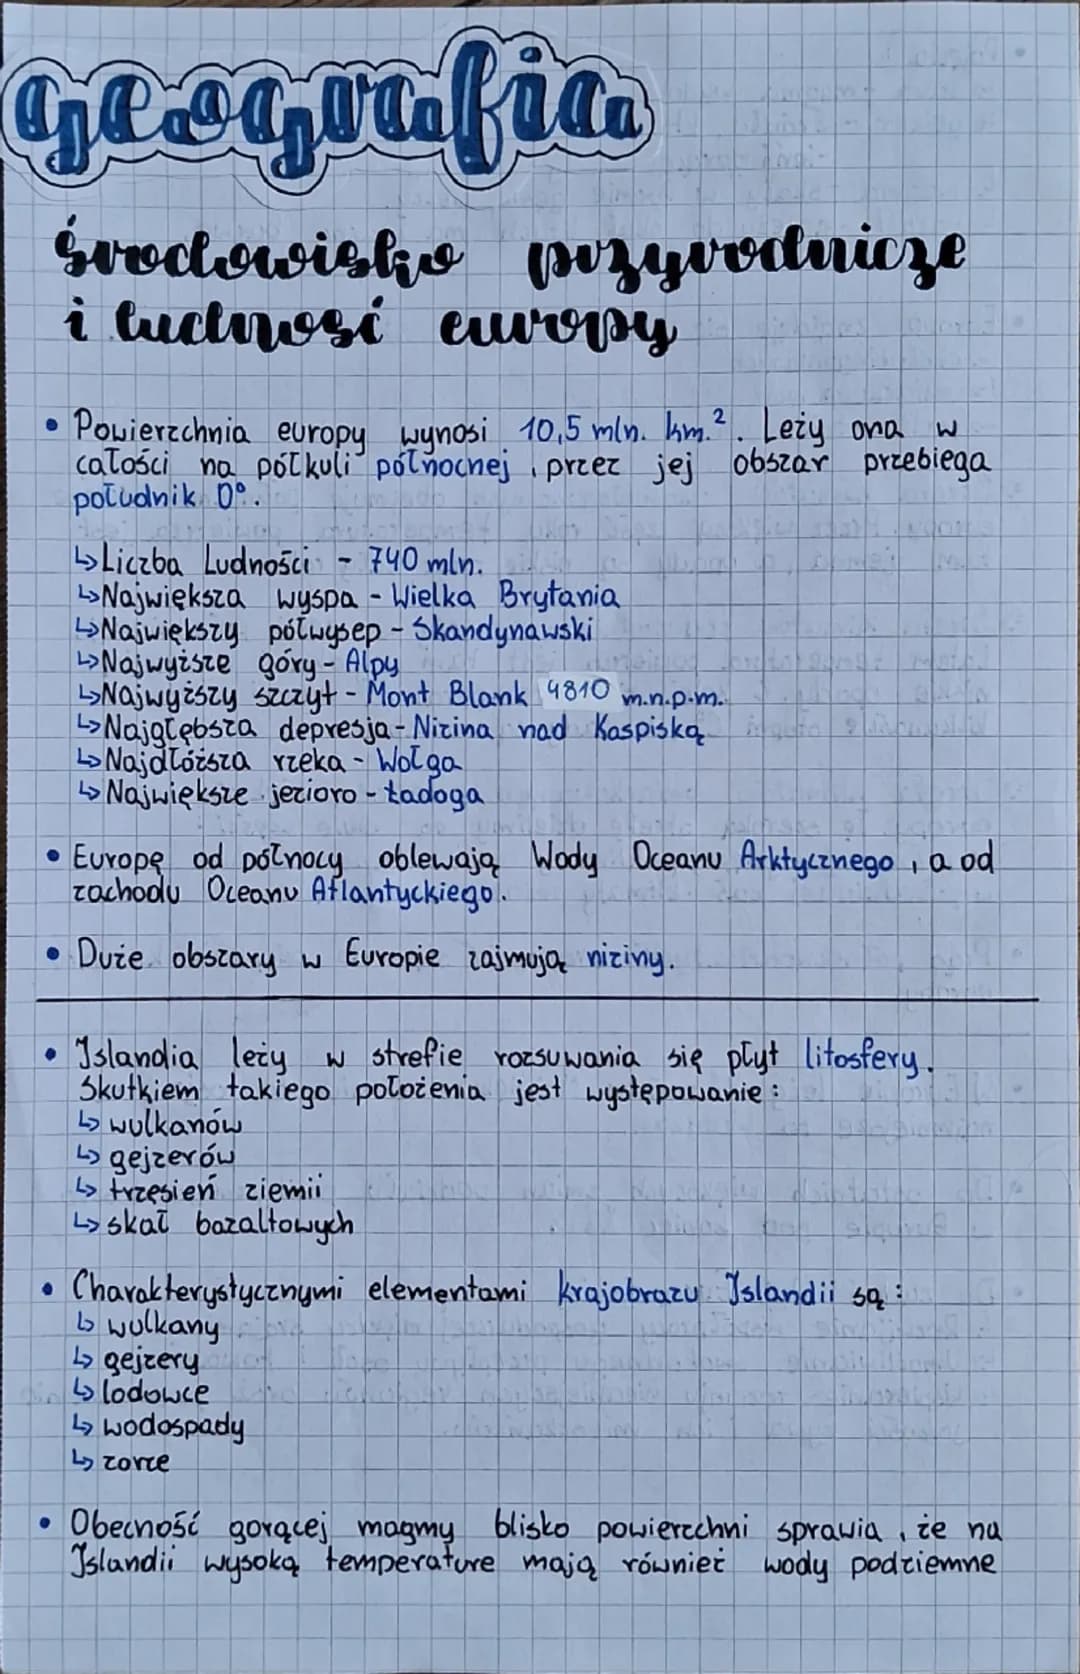 geografia
środowisko przyrodnicze
i ludność europy
• Powierzchnia europy wynosi 10,5 mln. km.². Leży ona w
całości na półkuli północnej, przez jej obszar przebiega
południk 0°.
↳Liczba Ludności - 740 mln.
↳Największa wyspa - Wielka Brytania
↳Największy półwysep - Skandynawski
↳Najwyższe góry - Alpy
↳Najwyższy szczyt - Mont Blank 4810 m.n.p.m.
↳Najgłębsza depresja - Nizina nad Kaspiską
↳Najdłóższa rzeka - Wołga
↳Największe jezioro - Ładoga
• Europę od północy oblewają Wody Oceanu Arktycznego, a od
zachodu Oceanu Atlantyckiego.
• Duże obszary w Europie zajmują niziny.
• Islandia leży w strefie rozsuwania się płyt litosfery.
Skutkiem takiego położenia jest występowanie:
↳ wulkanów
↳ gejzerów
↳ trzęsień ziemii
↳ skał bazaltowych
• Charakterystycznymi elementami krajobrazu Islandii są:
↳ wulkany
↳ gejzery
↳ lodowce
↳ wodospady
↳ zorze
• Obecność gorącej magmy blisko powierzchni sprawia, że na
Islandii wysoką temperature mają również wody podziemne